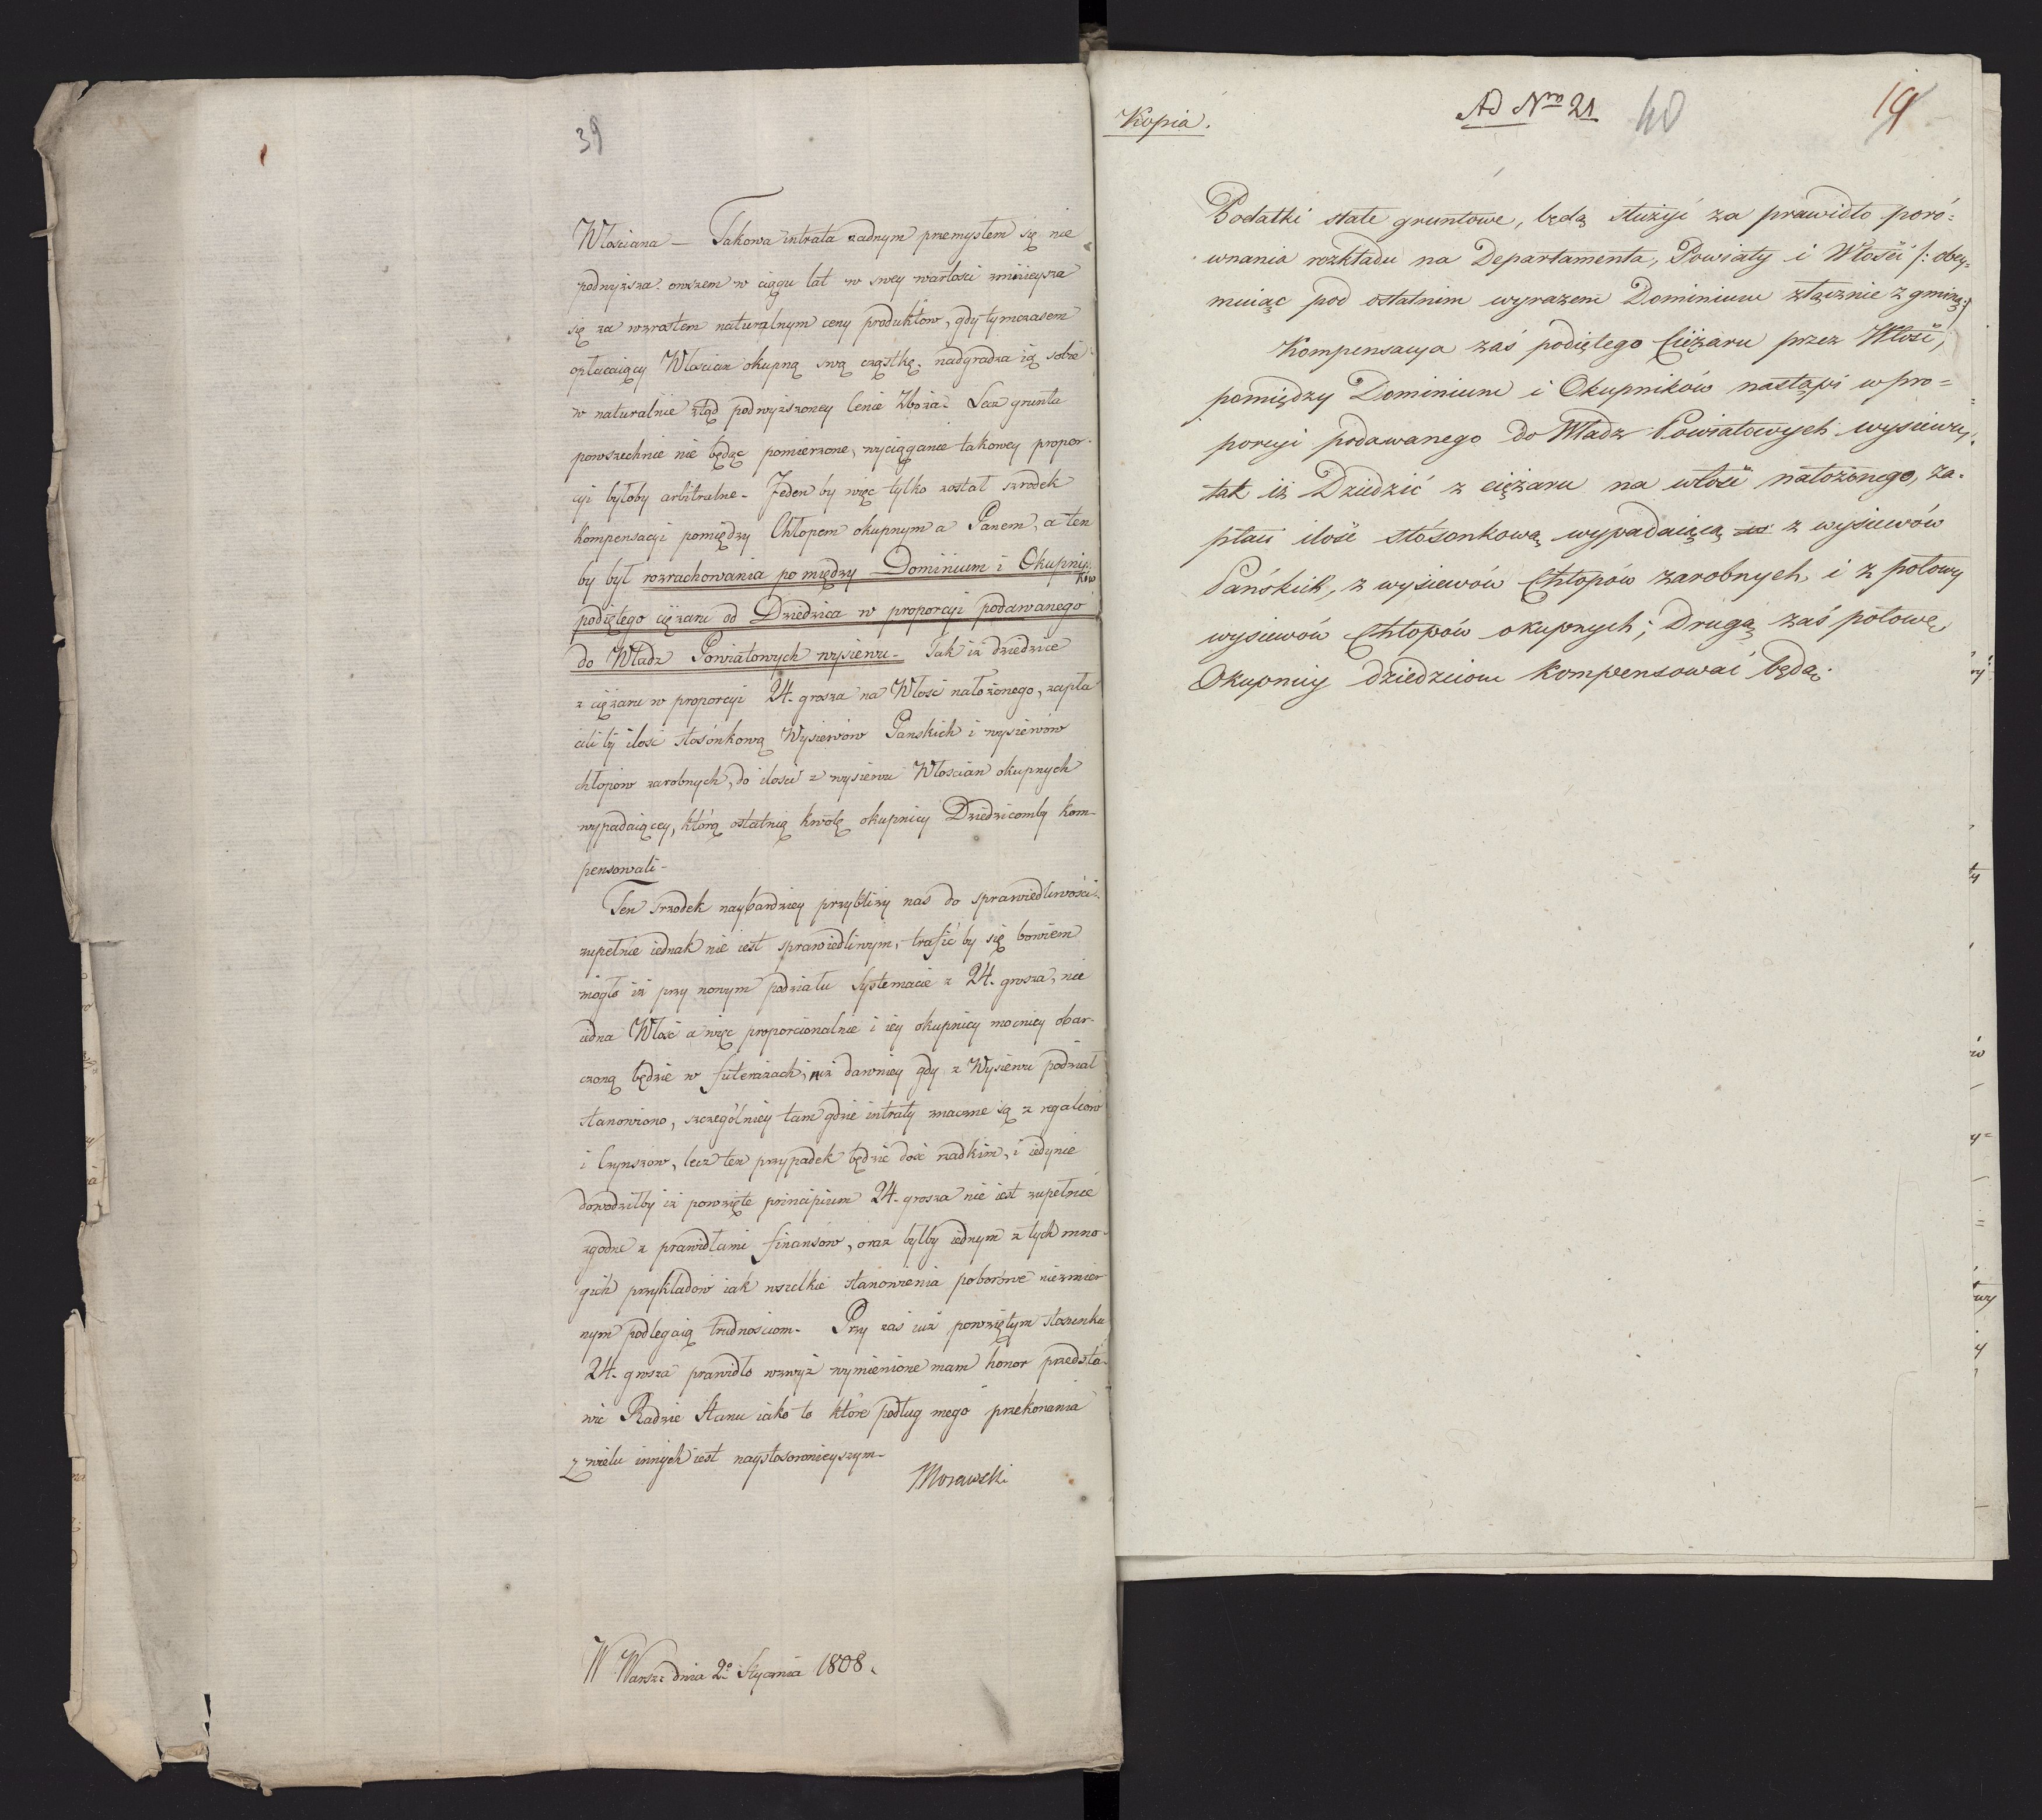 39
Włosciana — Takowa intrata zadnym przemysłem się nie
podwyzsza. owszem w ciągu lat w swey wartosci zmnieysza
się za wzrostem naturalnym ceny produktow, gdy tymczasem
opłacaiący Włoscian okupną swą cząstkę, nadgradza ią sobie
w naturalnie ztąd podwyzszoney Cenie Zboża. Lecz grunta
powszechnie nie będąc pomierzone, wyciąganie takowey propor-
cyi byłoby arbitralne. Jeden by więc tylko został szrodek
kompensacyi pomiędzy Chłopem okupnym a Panem, a ten
by był rozrachowania pomiędzy Dominium i Okupni-
ków
podiętego ciężaru od Dziedzica w proporcyi podawanego
do Władz Powiatowych wysiewu. Tak iż dziedzice
z ciężaru w proporcyi 24. grosza na Włość nałożonego, zapła
cili by ilość stosónkową Wysiewów Panskich i wysiewów
chłopów zarobnych, do ilości z wysiewu Włoscian okupnych
wypadaiącey, którą ostatnią kwotę okupnicy Dziedzicomby kom-
pensowali-
Ten srzodek naybardziey przybliży nas do sprawiedliwości.
zupełnie iednak nie iest sprawiedliwym, trafić by się bowiem
mogło iż przy nowym podziału Systemacie z 24. grosza, nie
iedna Włość a więc proporcionalnie i iey okupnicy mocniey obar-
czoną będzie w futerażach, niż dawniey gdy z Wysiewu podział
stanowiono, szczególniey tam gdzie intraty znaczne są z regaliow
i Czynszow, lecz ten przypadek będzie dość rzadkim, i iedynie
dowodziłby iż powzięte principium 24. grosza nie iest zupełnie
zgodne z prawidłami finansów, oraz byłby iednym z tych mno-
gich przykładow iak wszelkie stanowienia poborowe niezmier
nym podlegaią trudnosciom. Przy zaś iuż powziętym stosunku
24. grosza prawidło wzwyż wymienione mam honor przedsta-
wić Radzie Stanu iako to które podług mego przekonania
z wielu innych iest naystosownieyszym.
Morawski
W Warsz: dnia 2o Stycznia 1808.
Kopia.
Ad Nro 21
40
19
Podatki stałe gruntowe, będą służyć za prawidło poró=
wnania rozkładu na Departamenta, Powiaty i Włości /: obey=
muiąc pod ostatnim wyrazem Dominium złącznie z gminą:/
Kompensacya zaś podiętego Ciężaru przez Włość,
pomiędzy Dominium i Okupników nastąpi w pro=
porcyi podawanego do Władz Powiatowych wysiewu,
tak iż Dziedzic z ciężaru na włość nałożonego, za-
płaci ilość stósonkową wypadaiącą z wysiewów
Pańskich, z wysiewów Chłopów zarobnych i z połowy
wysiewów Chłopów okupnych; Drugą zaś połowę,
Okupnicy dziedzicom kompensować będą.